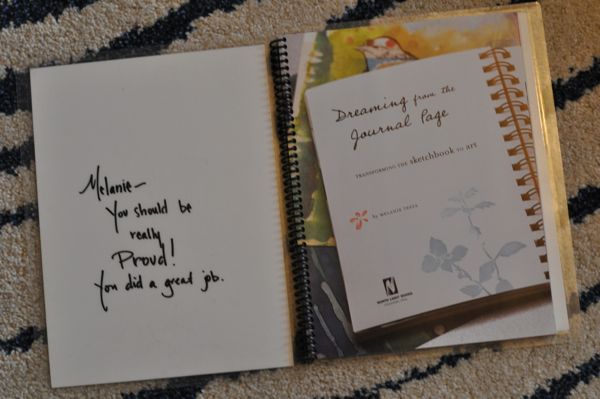 Melanie—
You should be
really
Proud!
You did a great job.
Dreaming from the
Journal Page
TRANSFORMING THE sketchbook TO art
by MELANIE TESTA
N
NORTH LIGHT BOOKS